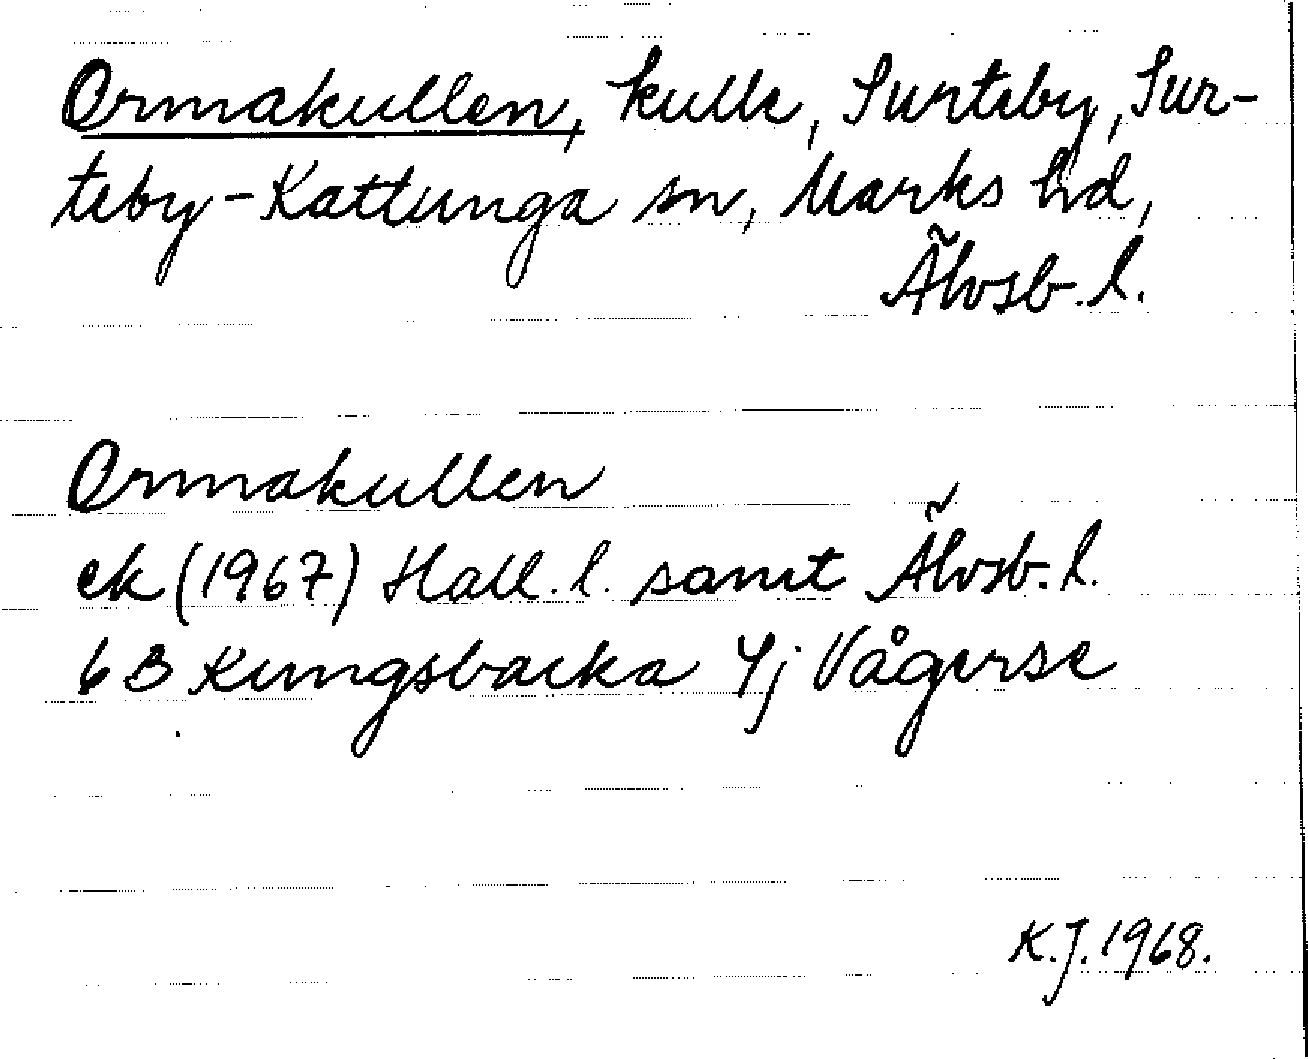 Ormakullen, kulle, Surteby, Sur-
teby-Kattunga sn, Marks hd,
Älvsb. l.
Ormakullen
ek (1967) Hall. l. samt Älvsb. l.
6B Kungsbacka 4j Vågerse
K.J. 1968.